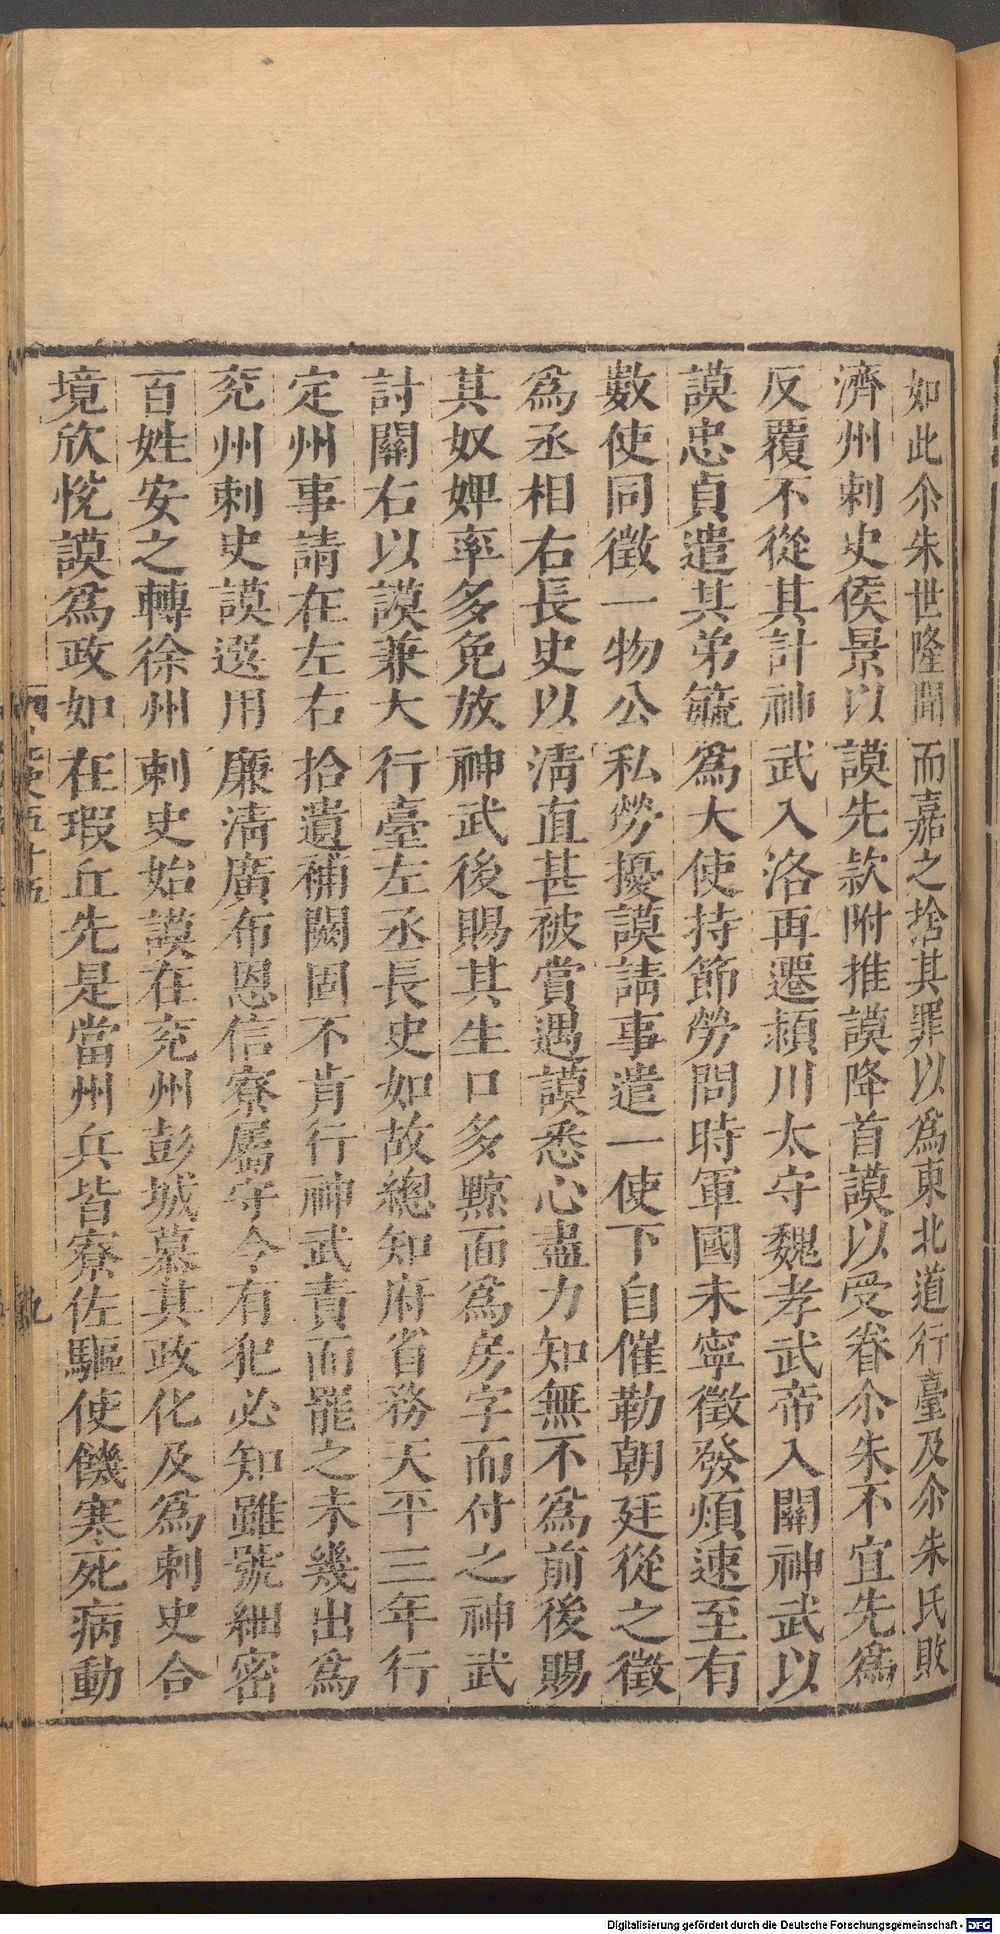 如此尒朱世隆聞而嘉之捨其罪以爲東北道行臺及尒朱氏敗
濟州刺史侯景以謨先款附推謨降首謨以受眷尒朱不宜先爲
反覆不從其計神武入洛再遷潁川太守魏孝武帝入關神武以
謨忠貞遣其弟毓爲大使持節勞問時軍國未寧徵發煩速至有
數使同徵一物公私勞擾謨請事遣一使下自催勒朝廷從之徵
爲丞相右長史以清直甚被賞遇謨悉心盡力知無不爲前後賜
其奴婢率多免放神武後賜其生口多黥面爲房字而付之神武
討關右以謨兼大行臺左丞長史如故總知府省務天平三年行
定州事請在左右拾遺補闕固不肯行神武責而罷之未幾出爲
兖州刺史謨選用廉清廣布恩信寮屬守令有犯必知雖號細密
百姓安之轉徐州刺史始謨在兖州彭城慕其政化及爲刺史合
境欣悅謨爲政如在瑕丘先是當州兵皆寮佐驅使饑寒死病動
史五十五
九
Digitalisierung gefördert durch die Deutsche Forschungsgemeinschaft - DFG